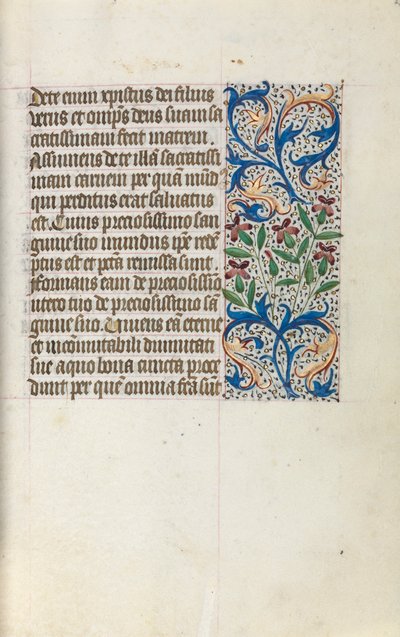 De te enim xpistus dei filius
verus et omp̄s deus suam sa
cratissimam fecit matrem.
Assumens de te illā sacratissi
mam carnem per quā mūd
qui perditus erat saluatus
est. Cuius preciosissimo san
guine suo mundus ip̄e rede
ptus est et pctā remissa sunt.
Formans eam de preciosissio
utero tuo de preciosissimo sā
guine suo. Uniens eā eterne
et incōmutabili diuinitati
sue a quo bona cuncta proce
dunt per quē omnia fcā sūt